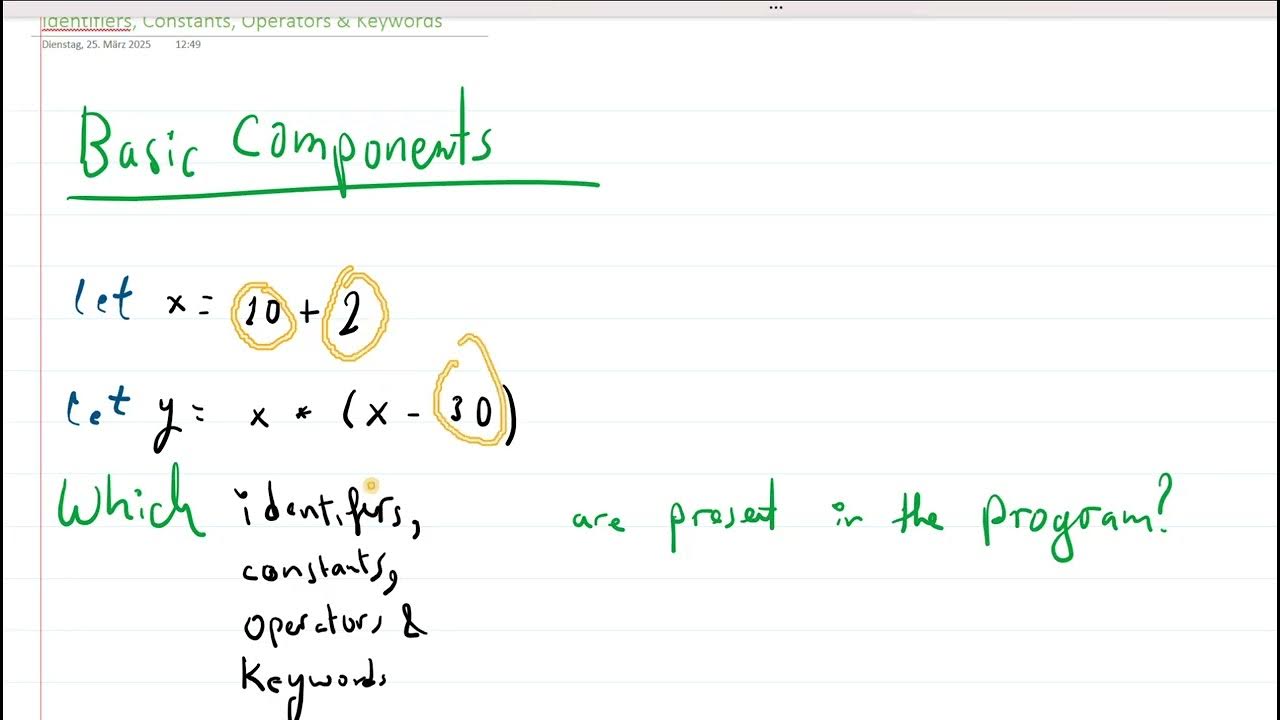 Identifiers, Constants, Operators & Keywords
Dienstag, 25. März 2025 12:49
Basic Components
let x = 10 + 2
let y = x * (x - 30)
Which identifirs, are present in the program?
constants,
operators &
Keywords